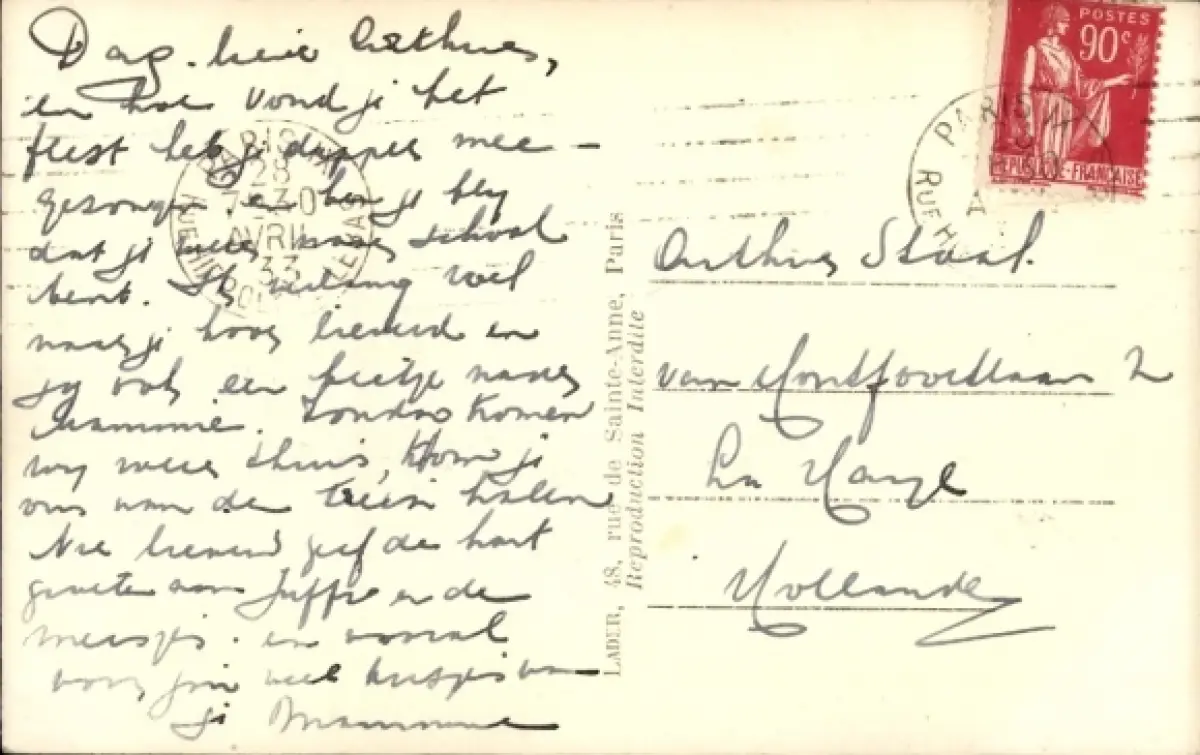 Dag lieve Arthur,
en hoe vond je het
feest heb je dapper mee-
gezongen en ben je bly
dat je weer naar school
bent. Ik verlang wel
naar je hoor lieverd en
jy ook een beetje naar
Mammie. Zondag komen
wy weer thuis, kom je
ons van de trein halen
Nu lieverd geef de hart
groeten aan Juffie en de
meisjes. en vooral
voor jou veel kusjes van
je Mammie
PARIS
28
7 30
AVRIL
33
POSTES
90c
REPUBLIQUE-FRANÇAISE
PARIS
RUE
Arthur Staal.
van Montfoortlaan 2
La Haye
Hollande
LADER, 48, rue de Sainte-Anne, Paris
Reproduction Interdite